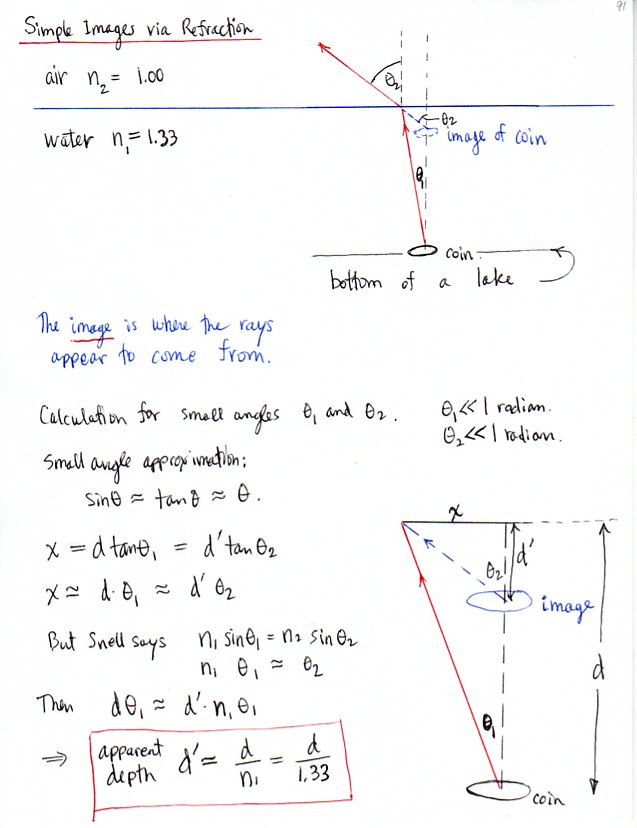 91
Simple Images via Refraction
air n₂ = 1.00
θ₂
water n₁ = 1.33
θ₂
image of coin
θ₁
coin
bottom of a lake
The image is where the rays
appear to come from.
Calculation for small angles θ₁ and θ₂. θ₁ << 1 radian.
θ₂ << 1 radian.
Small angle approximation:
sinθ ≈ tanθ ≈ θ.
x = d tanθ₁ = d' tanθ₂
x ≃ d·θ₁ ≈ d' θ₂
But Snell says n₁ sinθ₁ = n₂ sinθ₂
n₁ θ₁ ≈ θ₂
Then dθ₁ ≈ d'·n₁θ₁
⇒ apparent depth d' ≃ d/n₁ = d/1.33
x
d'
θ₂
image
d
θ₁
coin